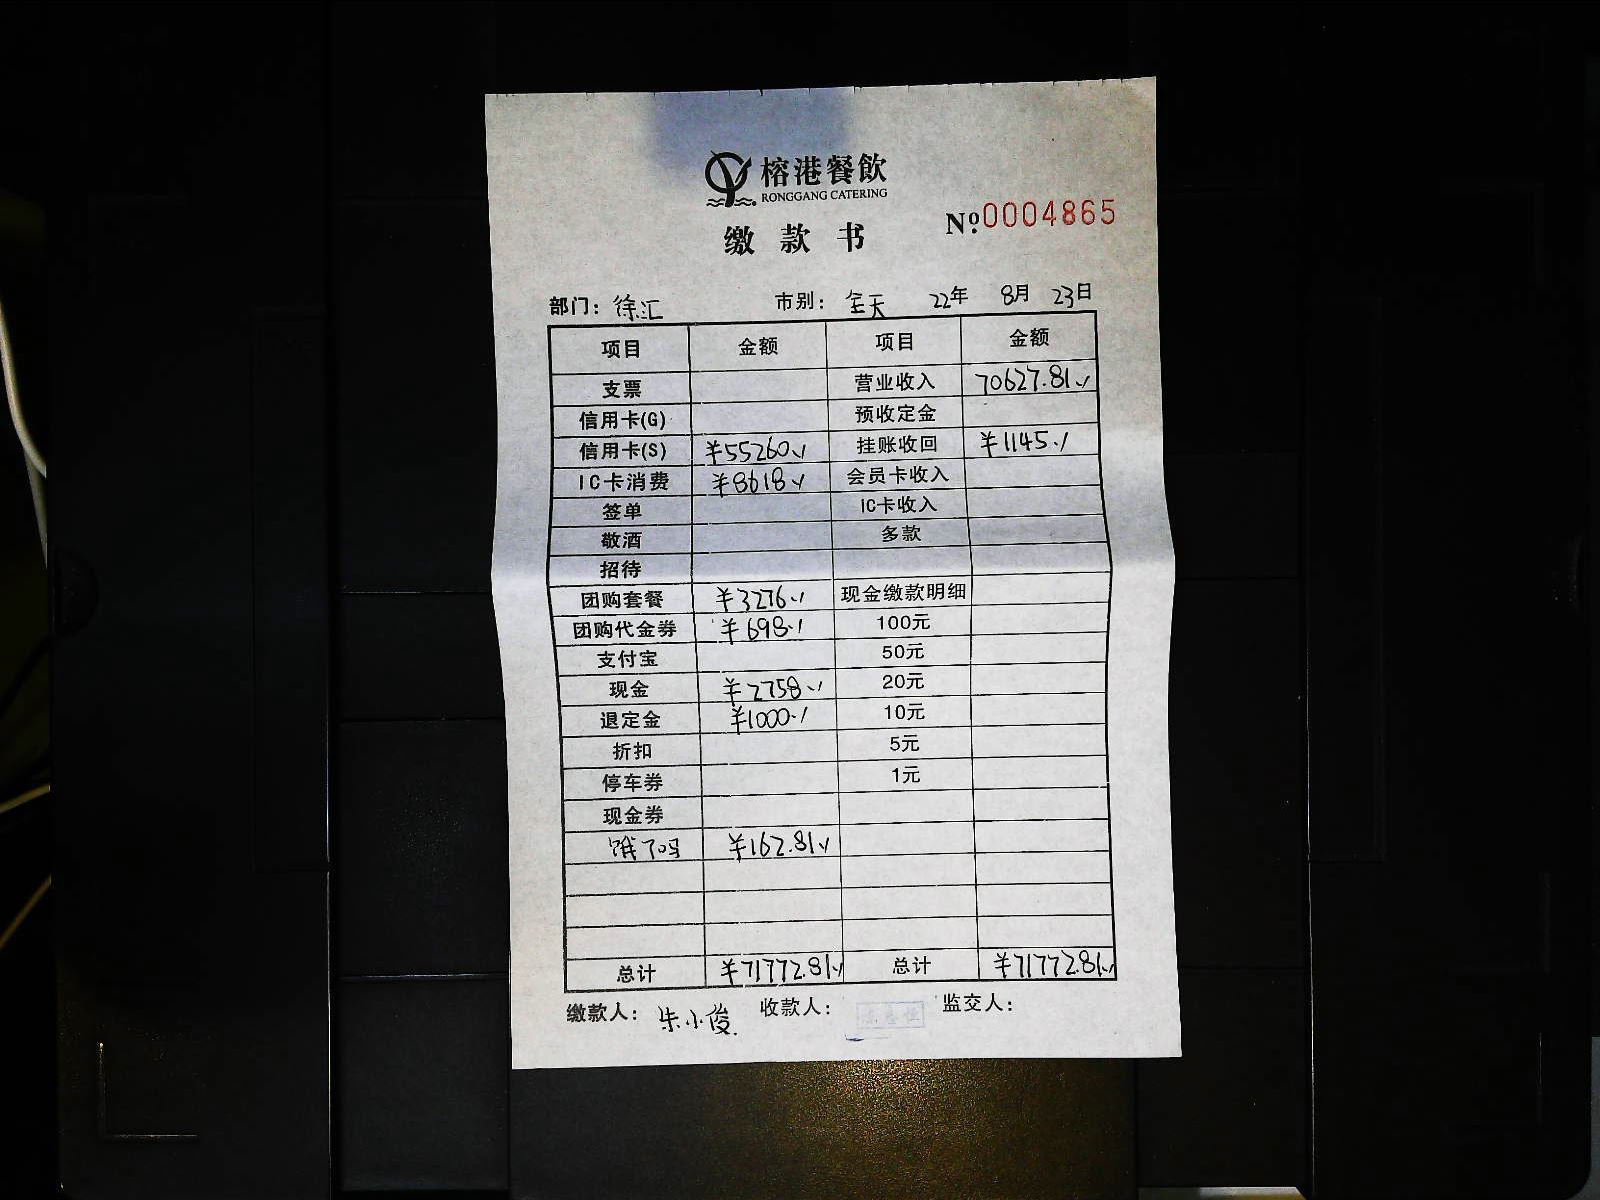 榕港餐飲
RONGGANG CATERING
缴款书
№0004865
部门：徐汇 市别：全天 22年 8月 23日
项目 金额 项目 金额
支票 营业收入 70627.81
信用卡(G) 预收定金
信用卡(S) ¥55260.- 挂账收回 ¥1145.-
IC卡消费 ¥8618.- 会员卡收入
签单 IC卡收入
敬酒 多款
招待
团购套餐 ¥3276.- 现金缴款明细
团购代金券 ¥698.- 100元
支付宝 50元
现金 ¥2758.- 20元
退定金 ¥1000.- 10元
折扣 5元
停车券 1元
现金券
饿了吗 ¥162.81
总计 ¥71772.81 总计 ¥71772.81
缴款人：朱小俊. 收款人： 监交人：